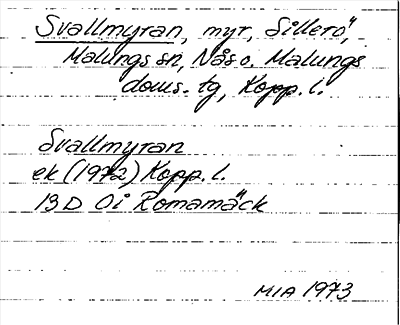 Svallmyran, myr, Sillerö,
Malungs sn, Nås o. Malungs
doms. tg, Kopp. l.
Svallmyran
ek (1972) Kopp. l.
13D 0i Romamäck
MIA 1973